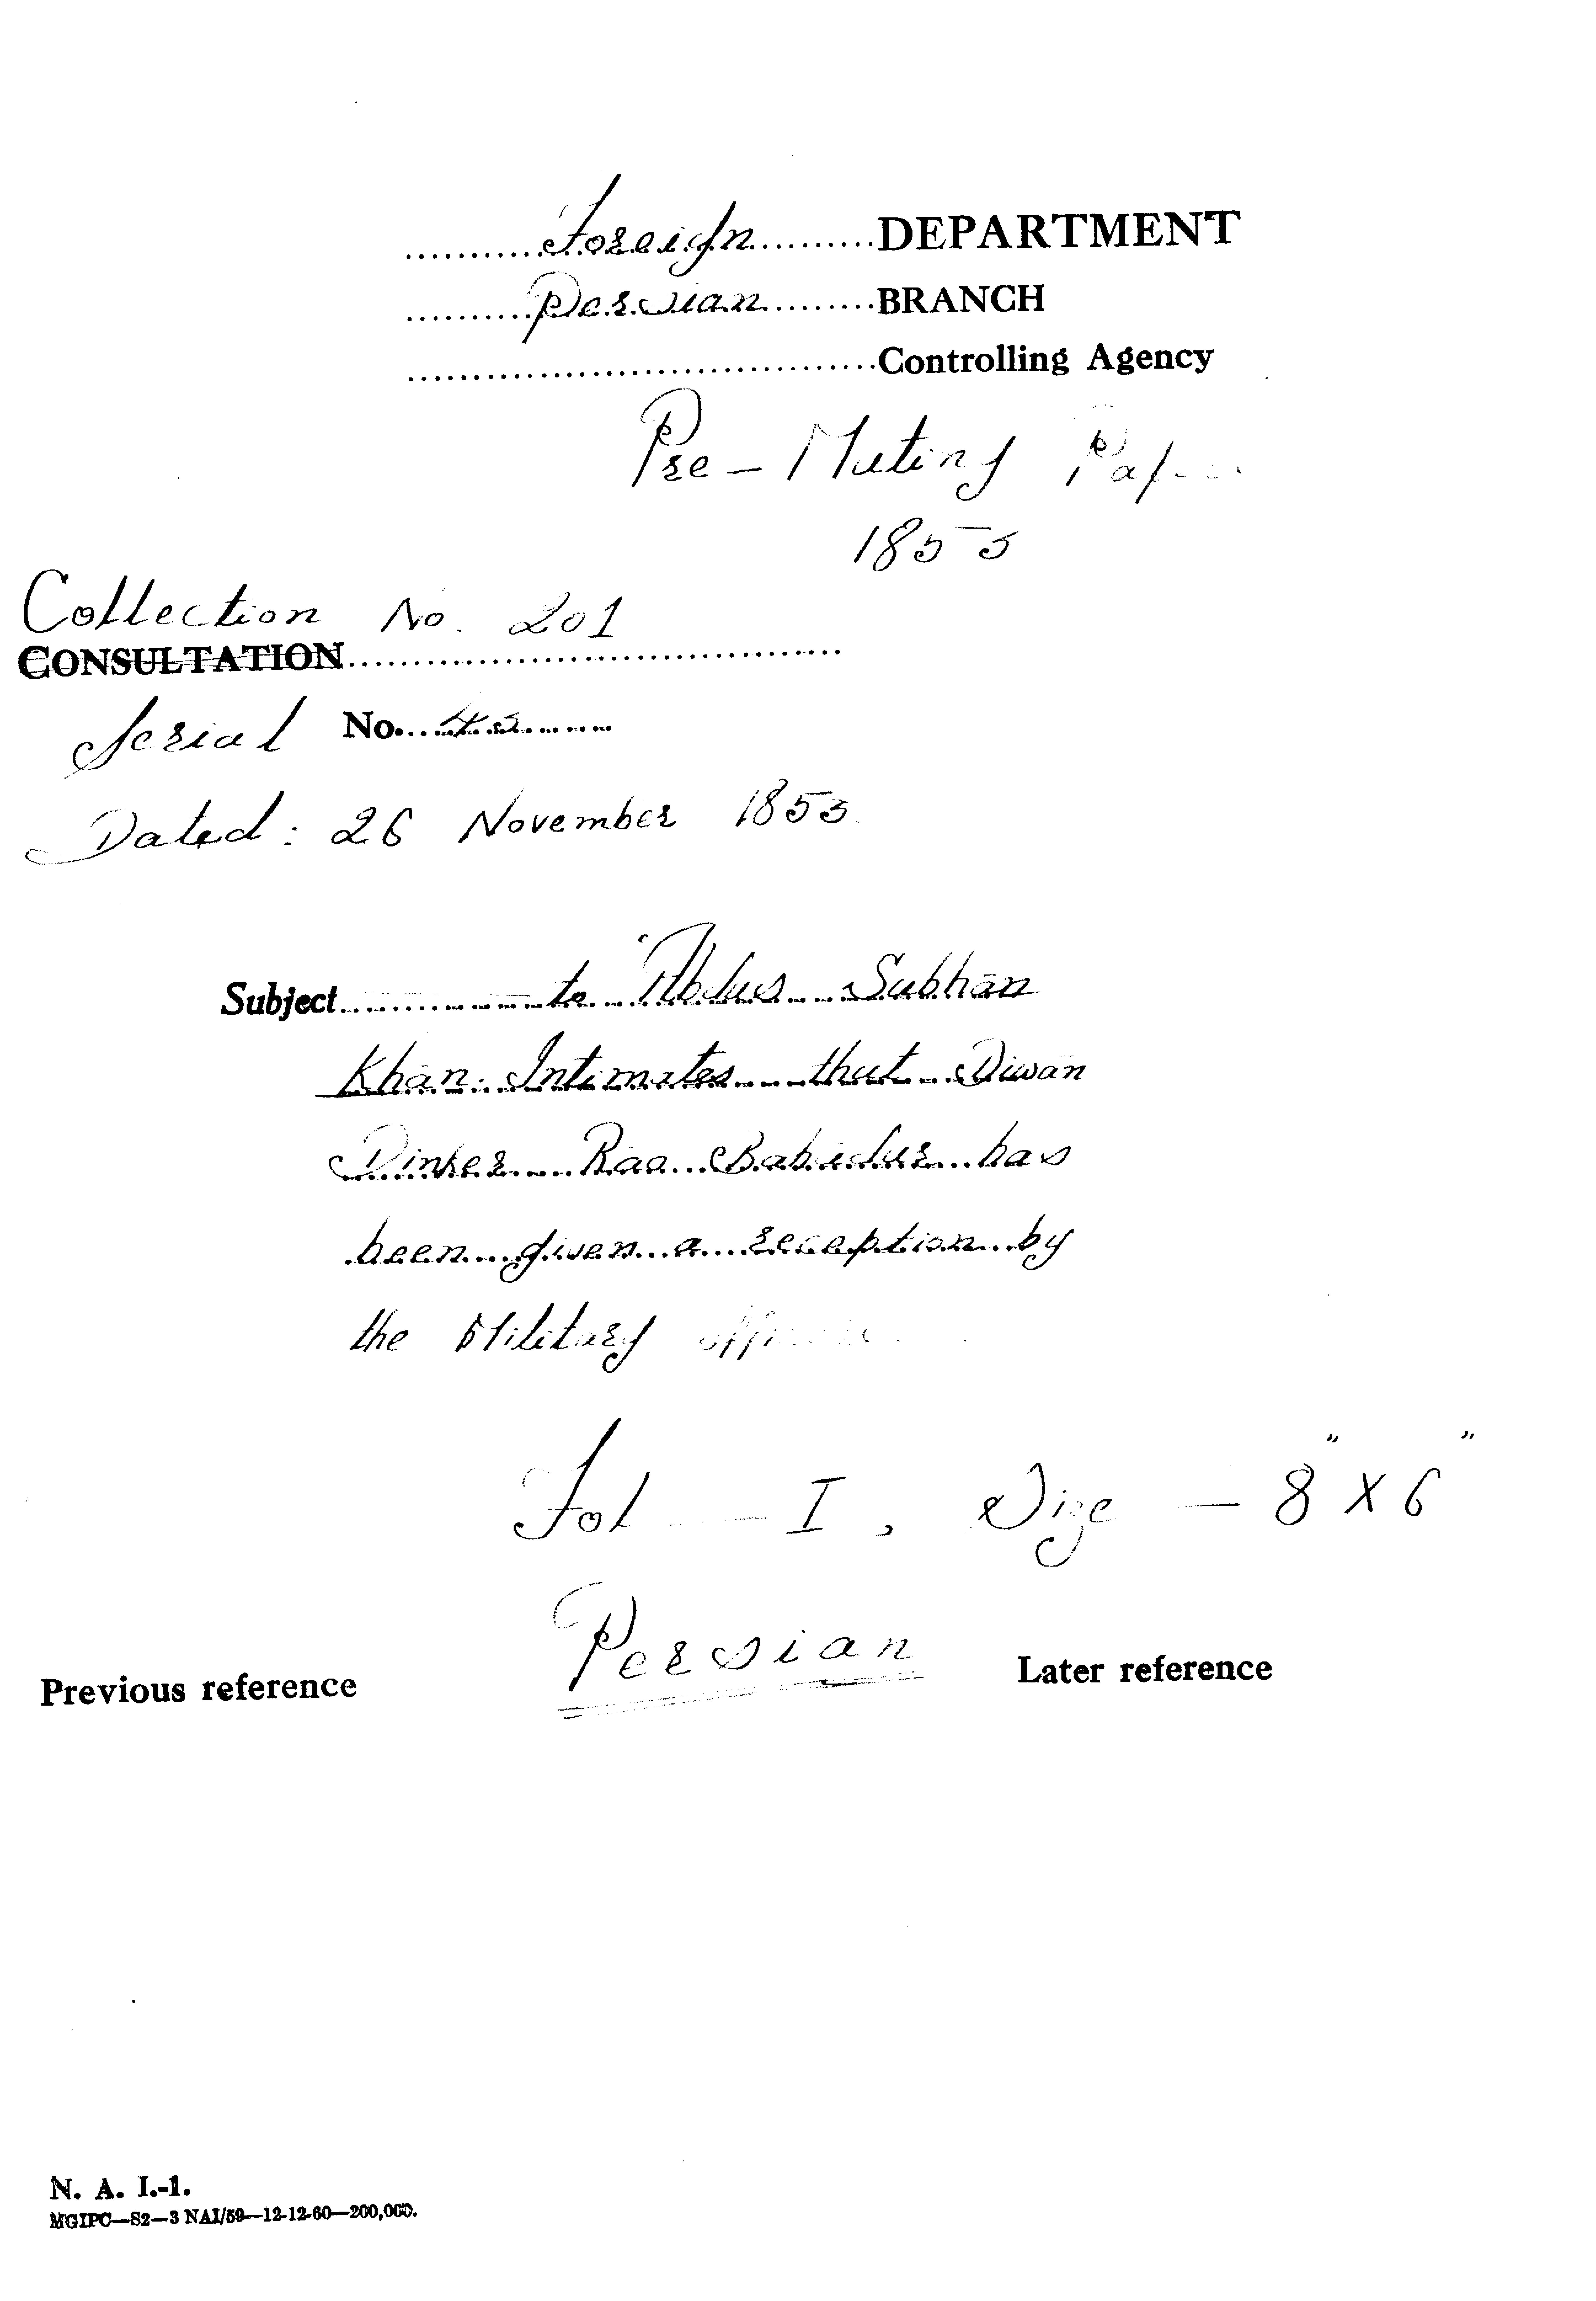 Foreign DEPARTMENT
Persian BRANCH
Controlling Agency
Pre-Mutiny
1853
Collection No. 201
CONSULTATION
Serial No. 45
Dated: 26 November 1853
Subject — to Abdus Subhan
Khan. Intimates that Diwan
Dinker Rao Bahadur has
been given a reception by
the Military
Fol — I, Size — 8" X 6"
Persian
Previous reference Later reference
N. A. I.-1.
MGIPC—S2—3 NAI/59—12-12-60—200,000.